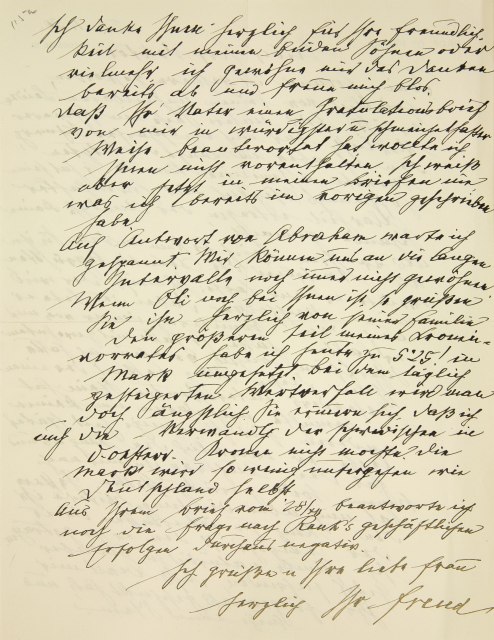 Ich danke Ihnen herzlich für Ihre Freundlich-
keit mit meinen beiden Söhnen oder
vielmehr, ich gewöhne mir das Danken
bereits ab und freue mich blos.
Daß Ihr Vater einen Gratulationsbrief
von mir in würdigster u schmeichelhafter
Weise beantwortet hat wollte ich
Ihnen nicht vorenthalten. Ich weiß
aber jetzt in meinen Briefen nie
was ich bereits im vorigen geschrieben
habe.
Auf Antwort von Abraham warte ich
gespannt. Wir können uns an die langen
Intervalle noch immer nicht gewöhnen
Wenn Oli noch bei Ihnen ist, so grüßen
Sie ihn herzlich von seiner Familie
Den größeren Teil meines Kronen-
vorrates habe ich heute zu in
Mark umgesetzt, bei dem täglich
gesteigerten Wertverfall wird man
doch ängstlich Sie erinnern sich, daß ich
auch die Verwandlg der schwedischen in
österr. Krone nicht mochte die
Mark wird so wenig untergehen wie
Deutschland selbst.
Aus Ihrem Brief vom beantworte ich
noch die Frage nach Rank's geschäftlichen
Erfolgen durchaus negativ.
Ich grüße u Ihre liebe Frau
herzlich Ihr Freud